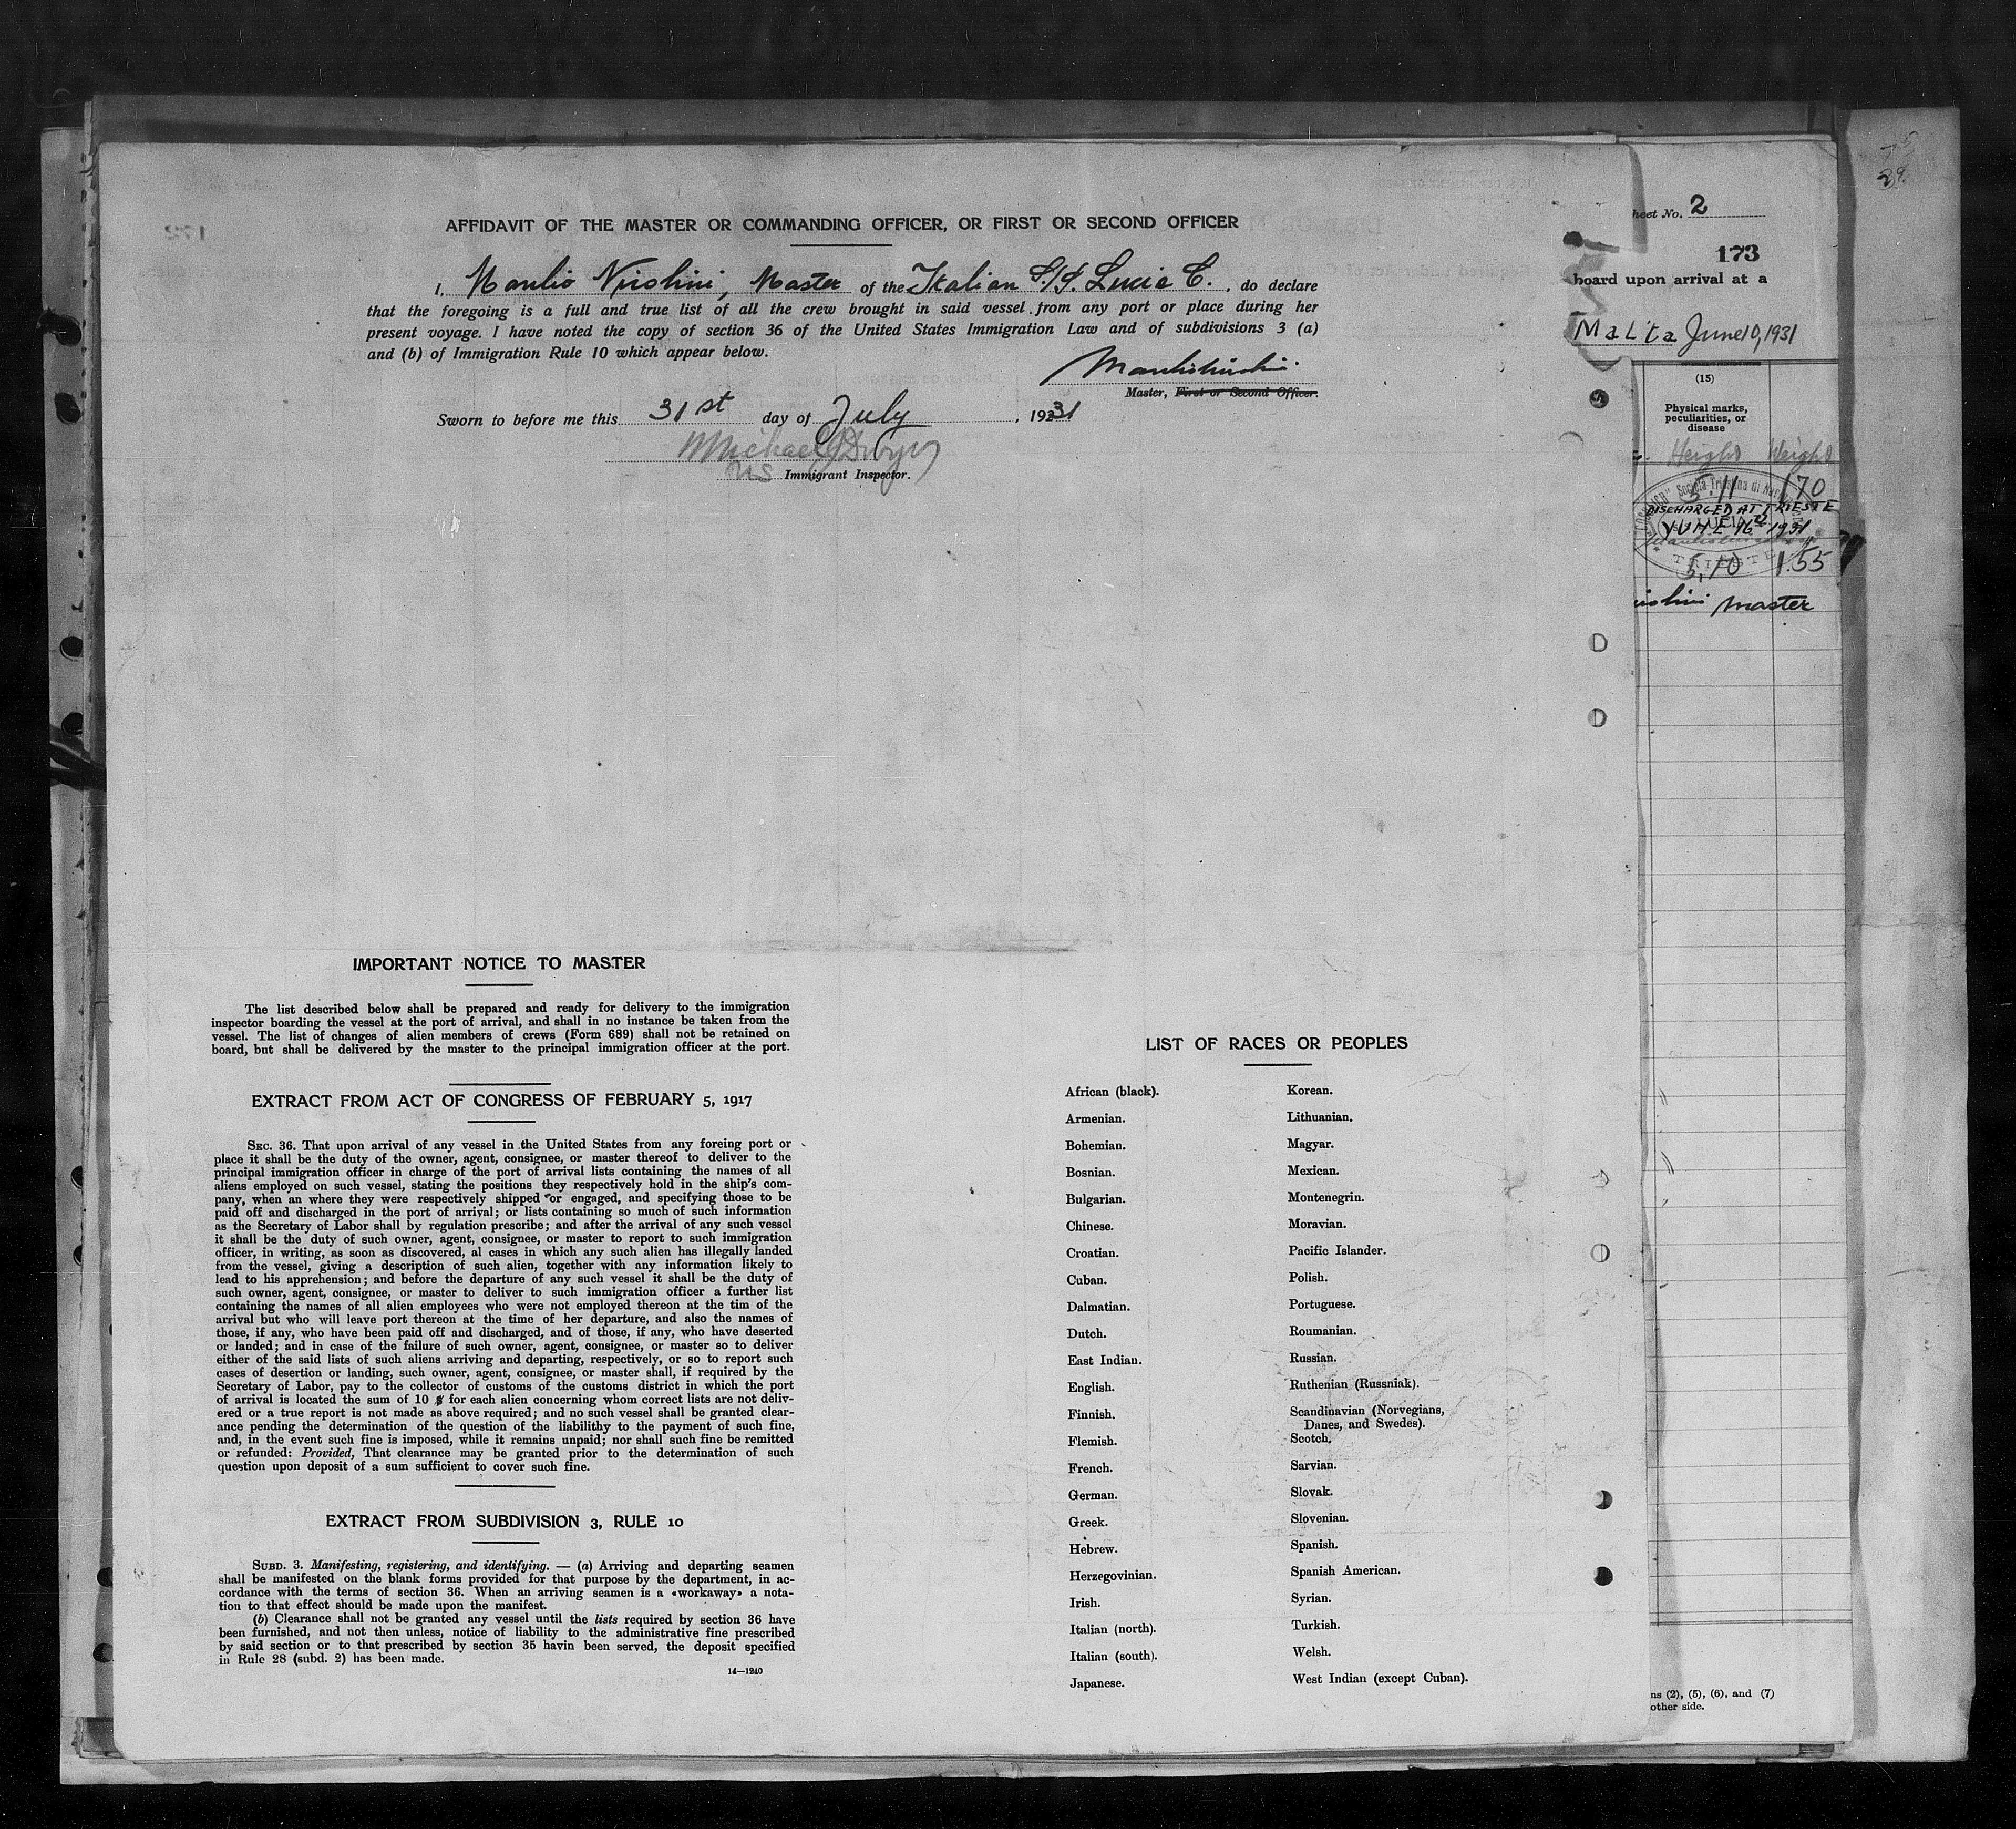 AFFIDAVIT OF THE MASTER OR COMMANDING OFFICER, OR FIRST OR SECOND OFFICER
I, Manlio Nicolini, Master of the Italian S/S. Lucia C. , do declare
that the foregoing is a full and true list of all the crew brought in said vessel from any port or place during her
present voyage. I have noted the copy of section 36 of the United States Immigration Law and of subdivisions 3 (a)
and (b) of Immigration Rule 10 which appear below.
Master, First or Second Officer.
Sworn to before me this 31st day of July , 1931
Michael J Dwyer
US Immigrant Inspector.
IMPORTANT NOTICE TO MASTER
The list described below shall be prepared and ready for delivery to the immigration
inspector boarding the vessel at the port of arrival, and shall in no instance be taken from the
vessel. The list of changes of alien members of crews (Form 689) shall not be retained on
board, but shall be delivered by the master to the principal immigration officer at the port.
EXTRACT FROM ACT OF CONGRESS OF FEBRUARY 5, 1917
SEC. 36. That upon arrival of any vessel in the United States from any foreing port or
place it shall be the duty of the owner, agent, consignee, or master thereof to deliver to the
principal immigration officer in charge of the port of arrival lists containing the names of all
aliens employed on such vessel, stating the positions they respectively hold in the ship's com-
pany, when an where they were respectively shipped or engaged, and specifying those to be
paid off and discharged in the port of arrival; or lists containing so much of such information
as the Secretary of Labor shall by regulation prescribe; and after the arrival of any such vessel
it shall be the duty of such owner, agent, consignee, or master to report to such immigration
officer, in writing, as soon as discovered, al cases in which any such alien has illegally landed
from the vessel, giving a description of such alien, together with any information likely to
lead to his apprehension; and before the departure of any such vessel it shall be the duty of
such owner, agent, consignee, or master to deliver to such immigration officer a further list
containing the names of all alien employees who were not employed thereon at the tim of the
arrival but who will leave port thereon at the time of her departure, and also the names of
those, if any, who have been paid off and discharged, and of those, if any, who have deserted
or landed; and in case of the failure of such owner, agent, consignee, or master so to deliver
either of the said lists of such aliens arriving and departing, respectively, or so to report such
cases of desertion or landing, such owner, agent, consignee, or master shall, if required by the
Secretary of Labor, pay to the collector of customs of the customs district in which the port
of arrival is located the sum of 10 $ for each alien concerning whom correct lists are not deliv-
ered or a true report is not made as above required; and no such vessel shall be granted clear-
ance pending the determination of the question of the liabilithy to the payment of such fine,
and, in the event such fine is imposed, while it remains unpaid; nor shall such fine be remitted
or refunded: Provided, That clearance may be granted prior to the determination of such
question upon deposit of a sum sufficient to cover such fine.
EXTRACT FROM SUBDIVISION 3, RULE 10
SUBD. 3. Manifesting, registering, and identifying. — (a) Arriving and departing seamen
shall be manifested on the blank forms provided for that purpose by the department, in ac-
cordance with the terms of section 36. When an arriving seamen is a «workaway» a nota-
tion to that effect should be made upon the manifest.
(b) Clearance shall not be granted any vessel until the lists required by section 36 have
been furnished, and not then unless, notice of liability to the administrative fine prescribed
by said section or to that prescribed by section 35 havin been served, the deposit specified
in Rule 28 (subd. 2) has been made.
14—1240
LIST OF RACES OR PEOPLES
African (black).
Armenian.
Bohemian.
Bosnian.
Bulgarian.
Chinese.
Croatian.
Cuban.
Dalmatian.
Dutch.
East Indian.
English.
Finnish.
Flemish.
French.
German.
Greek.
Hebrew.
Herzegovinian.
Irish.
Italian (north).
Italian (south).
Japanese.
Korean.
Lithuanian.
Magyar.
Mexican.
Montenegrin.
Moravian.
Pacific Islander.
Polish.
Portuguese.
Roumanian.
Russian.
Ruthenian (Russniak).
Scandinavian (Norvegians,
Danes, and Swedes).
Scotch.
Sarvian.
Slovak.
Slovenian.
Spanish.
Spanish American.
Syrian.
Turkish.
Welsh.
West Indian (except Cuban).
heet No. 2
173
board upon arrival at a
Malta June 10, 1931
(15)
Physical marks,
peculiarities, or
disease
Height Weight
5.11 170
DISCHARGED AT TRIESTE
JUNE 16 1931
TRIESTE
5.10 1.55
Master
ns (2), (5), (6), and (7)
other side.